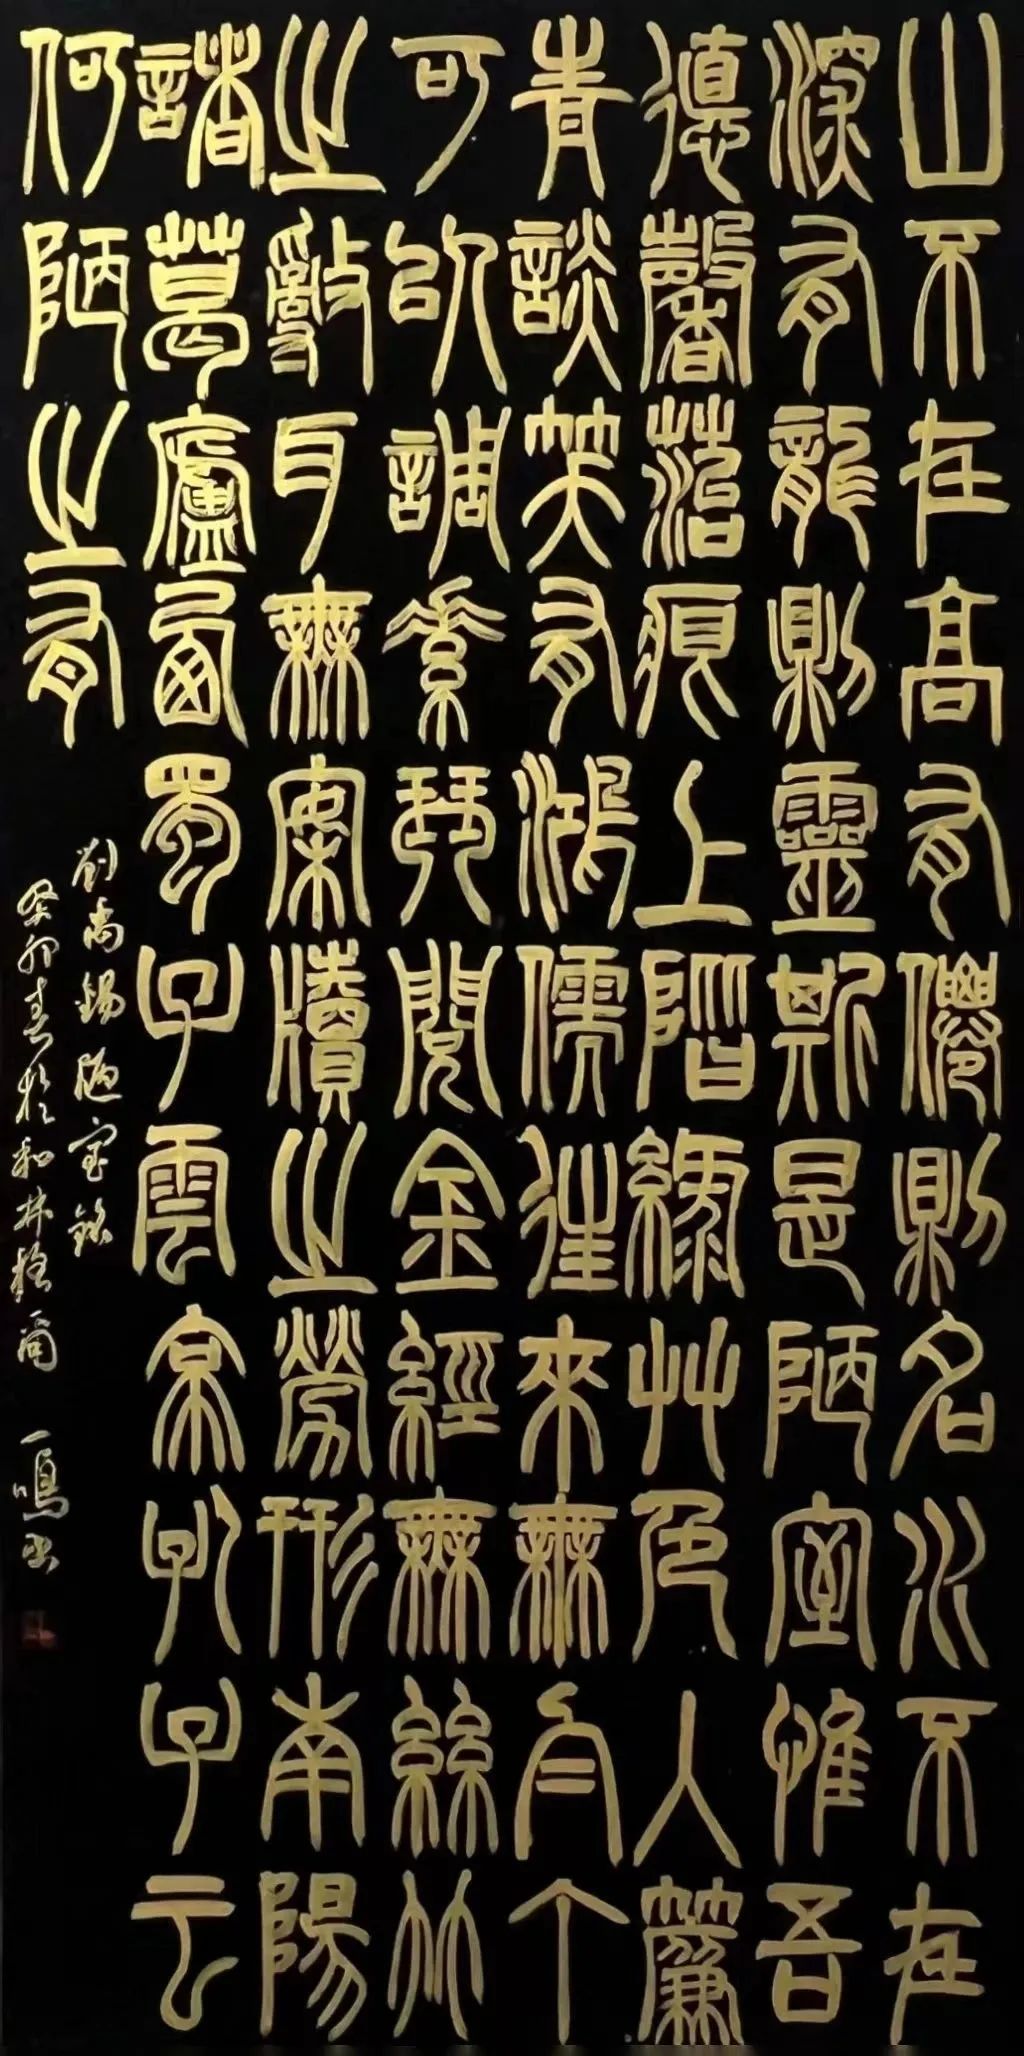 山不在高有僊則名水不在
深有龍則靈斯是陋室惟吾
德馨苔痕上階綠艸色入簾
青談笑有鴻儒往來無白丁
可以調素琴閱金經無絲竹
之亂耳無案牘之勞形南陽
諸葛廬西蜀子雲亭孔子云
何陋之有
劉禹錫陋室銘
癸卯春於和林格爾 一鳴書